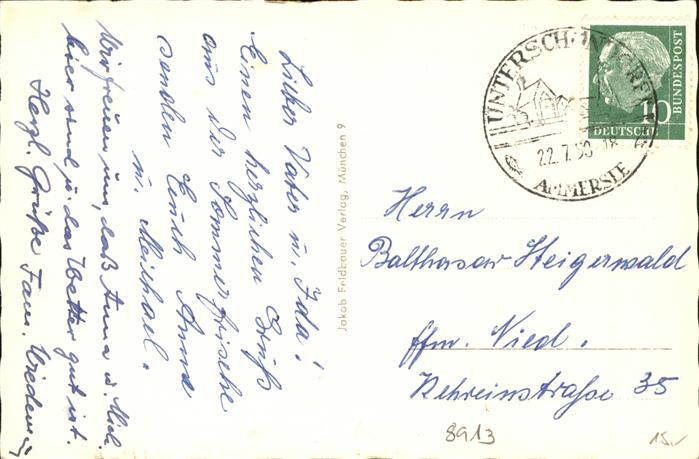 Lieber Vater u. Ida!
Einen herzlichen Gruß
aus der Sommerfrische
senden Euch Anna
u. Michael.
Wir freuen uns, daß Anna u. Mich.
hier sind u. das Wetter gut ist.
Herzl. Grüße Fam.
Jakob Feldbauer Verlag, München 9
UNTERSCHONDORF
22.7.
AMMERSEE
10
DEUTSCHE
BUNDESPOST
Herrn
Balthasar Steigerwald
ffm. Nied.
Rehreinstraße 35
8913
15.-